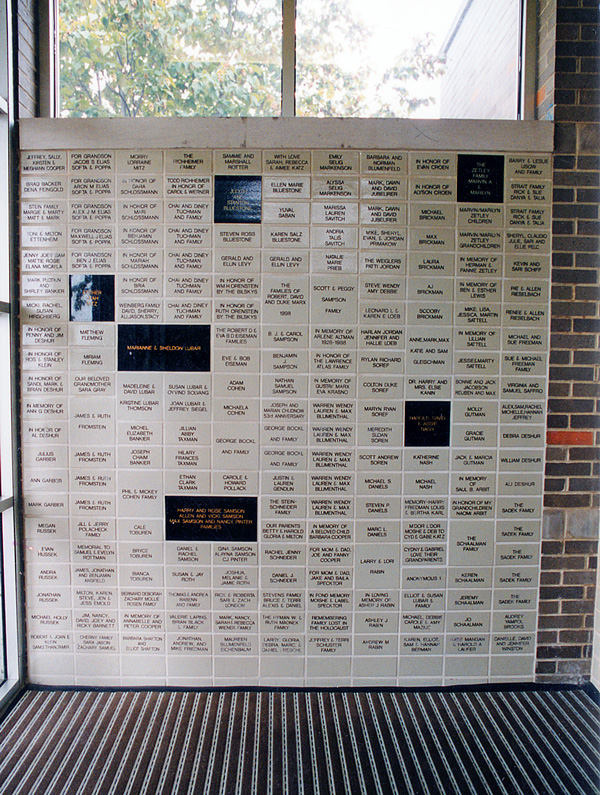 JEFFREY, SALLY,
KIRSTEN &
MEGHANN COOPER
FOR GRANDSON
JACOB S ELIAS
SOFTA & POPPA
MORRY
LORRAINE
MITZ
THE
RICHHEIMER
FAMILY
SAMMIE AND
MARSHALL
ROTTER
WITH LOVE
SARAH, REBECCA
& AIMEE KATZ
EMILY
SELIG
MARKENSON
BARBARA AND
NORMAN
BLUMENFELD
IN HONOR OF
EVAN CROEN
THE
ZETLEY
FAMILY
MARVIN A
&
MARILYN
BARRY & LESLIE
USOW
AND FAMILY
BRAD BACKER
DENA PEINGOLD
FOR GRANDSON
ARON M ELIAS
SOFTA & POPPA
IN HONOR OF
DARA
SCHLOSSMANN
TODD RICHHEIMER
IN HONOR OF
CAROL & WERNER
ELLEN MARIE
BLUESTONE
ALYSSA
SELIG
MARKENSON
MARK, DAWN
AND DAVID
JUBELIRER
IN HONOR OF
ALYSON CROEN
STRAIT FAMILY
RICK & SUE
DANYA & TALIA
STEIN FAMILY
MARGIE & MARTY
MATT & MARK
FOR GRANDSON
ALEX J M ELIAS
SOFTA & POPPA
IN HONOR OF
MARI
SCHLOSSMANN
CHAI AND DINEY
TUCHMAN
AND FAMILY
YUVAL
SABAN
MARISSA
LAUREN
SAVITCH
MARK, DAWN
AND DAVID
JUBELIRER
MICHAEL
BRICKMAN
MARVIN/MARILYN
ZETLEY
CHILDREN
STRAIT FAMILY
RICK & SUE
DANYA & TALIA
TONI & MILTON
ETTENHEIM
FOR GRANDSON
MAXWELL J ELIAS
SOFTA & POPPA
IN HONOR OF
BENJAMIN
SCHLOSSMANN
CHAI AND DINEY
TUCHMAN
AND FAMILY
STEVEN ROSS
BLUESTONE
KAREN SALZ
BLUESTONE
ANDRA
TALIS
SAVITCH
MIKE, SHERYL,
EVAN, & JORDAN
PRIMAKOW
MAX
BRICKMAN
MARVIN/MARILYN
ZETLEY
GRANDCHILDREN
SHERYL, CLAUDIO
JULIE, SARI AND
ELI FELIZ
JENNY JOEY &AM
MATTIE ROSIE
ELANA MICAYLA
FOR GRANDSON
BEN J ELIAS
SOFTA & POPPA
IN HONOR OF
MARIAH
SCHLOSSMANN
CHAI AND DINEY
TUCHMAN
AND FAMILY
GERALD AND
ELLIN LEVY
GERALD AND
ELLIN LEVY
NATALIE
MARIE
PRIEB
THE WEIGLERS
PATTI JORDAN
LAURA
BRICKMAN
IN MEMORY OF
HERMAN &
FANNIE ZETLEY
KEVIN AND
SARI SCHIFF
MARK PLOTKIN
AND
SHIRLEY BANKIER
IN HONOR OF
BRIA
SCHLOSSMANN
CHAI AND DINEY
TUCHMAN
AND FAMILY
IN HONOR OF
WM H ORENSTEIN
BY THE BILSKYS
THE
FAMILIES OF
ROBERT, DAVID
AND DUKE MARX
1998
SCOTT & PEGGY
SAMPSON
FAMILY
STEVE WENDY
AMY DEBBIE
AJ
BRICKMAN
IN MEMORY OF
BEN & ESTHER
LEWIS
PAT & ALLEN
RIESELBACH
MICKI, RACHEL
SUSAN
HIRSCHBERG
WEINBERG FAMILY
DAVID, SHERRY,
ALLISON, STACY
CHAI AND DINEY
TUCHMAN
AND FAMILY
IN HONOR OF
RUTH ORENSTEIN
BY THE BILSKYS
LEONARD L &
KAREN E LOEB
SCOOBY
BRICKMAN
MIKE, LISA,
JESSICA, MARTIN
SATTELL
RENEE & ALLEN
RIESELBACH
IN HONOR OF
PENNY AND JIM
DESHUR
MATTHEW
FLEMING
MARIANNE & SHELDON LUBAR
THE ROBERT D &
EVA B D EISEMAN
FAMILIES
B. J. & CAROL
SAMPSON
IN MEMORY OF
ARLENE ALTMAN
1935-1988
HARLAN JORDAN
JENNIFER AND
HALLIE LOEB
ANNE, MARK, MAX
KATIE AND SAM
GLEISCHMAN
IN MEMORY OF
LILLIAN
SATTELL
MICHAEL AND
SUE FRIEDMAN
IN HONOR OF
ROS & STANLEY
KLEIN
MIRIAM
FLEMING
EVE & BOB
EISEMAN
BENJAMIN
J
SAMPSON
IN HONOR OF
THE LAWRENCE
ATLAS FAMILY
RYLAN RICHARD
SOREF
JESSE/MARTY
SATTELL
SUE & MICHAEL
FRIEDMAN
FAMILY
IN HONOR OF
SANDI, MARK &
BRIAN DESHUR
OUR BELOVED
GRANDMOTHER
SARA GRAY
MADELEINE &
DAVID LUBAR
SUSAN LUBAR &
OYVIND SOLVANG
ADAM
COHEN
NATHAN
SAMUEL
SAMPSON
IN MEMORY OF
DUSTIN MARX
EVA KRASNO
COLTON DUKE
SOREF
DR. HARRY AND
MRS. ELSIE
KANIN
SONNIE AND JACK
JACOBSON
REUBEN AND MAX
VIRGINIA AND
SAMUEL SAFFRO
IN MEMORY OF
ANN G DESHUR
JAMES & RUTH
FROMSTEIN
KRISTINE LUBAR
THOMSON
JOAN LUBAR &
JEFFREY SIEGEL
MICHAELA
COHEN
JOSEPH AND
MARIAN CHUDNOW
53rd ANNIVERSARY
WARREN WENDY
LAUREN & MAX
BLUMENTHAL
MARVIN RYAN
SOREF
HAROLD, DAVID
& ABBIE
NASH
MOLLY
GUTMAN
ALEX, SAM, RACHEL
MICHELLE, HANNAH
JEFFREY
IN HONOR OF
AL DESHUR
MICHEL
ELIZABETH
BANKIER
JILLIAN
ABBY
TAXMAN
GEORGE BOCKL
AND FAMILY
GEORGE BOCKL
AND FAMILY
WARREN WENDY
LAUREN & MAX
BLUMENTHAL
MEREDITH
SLOAN
SOREN
GRACIE
GUTMAN
DEBRA DESHUR
JULIUS
GARBER
JAMES & RUTH
FROMSTEIN
JOSEPH
CHAIM
BANKIER
HILARY
FRANCES
TAXMAN
GEORGE BOCKL
AND FAMILY
WARREN WENDY
LAUREN & MAX
BLUMENTHAL
SCOTT ANDREW
SOREN
KATHERINE
NASH
JACK & MARCIA
GUTMAN
WILLIAM DESHUR
ANN GARBER
JAMES & RUTH
FROMSTEIN
PHIL & MICKEY
COHEN FAMILY
ETHAN
CLARK
TAXMAN
CAROLE &
HOWARD
POLLACK
JUSTIN &
LAUREN
GENDLIN
WARREN WENDY
LAUREN & MAX
BLUMENTHAL
MICHAEL S
DANIELS
MICHAEL
NASH
IN MEMORY OF
SAUL B. ARBIT
ALI DESHUR
MARK GARBER
JAMES & RUTH
FROMSTEIN
HARRY AND ROSE SAMSON
ALLEN AND VICKI SAMSON
MAX SAMSON AND NANCY PINTER
FAMILIES
THE STEIN-
SCHNEIDER
FAMILY
WARREN WENDY
LAUREN & MAX
BLUMENTHAL
STEVEN P
DANIELS
MEMORY-HARRY
FRIEDMAN LOUIS
& BERTHA KARL
IN HONOR OF MY
GRANDCHILDREN
NAOMI ARBIT
THE
SADEK FAMILY
MEGAN
RUSSEK
JILL & JERRY
POLACHECK
FAMILY
CALE
TOBUREN
OUR PARENTS
BETTY & HAROLD
GLORIA & MILTON
IN MEMORY OF
A BELOVED CHILD
BARBARA COOPER
MARC L
DANIELS
M'DOR L'DOR
MOSHE & DEB TO
CYD & GABE KATZ
THE
SCHAALMAN
FAMILY
THE
SADEK FAMILY
EVAN
RUSSEK
MEMORIAL TO
SAMUEL & EVELYN
ROTTMAN
BRYCE
TOBUREN
DANIEL &
RACHEL
SAMSON
GINA SAMSON
ALAYNA SAMSON
CJ PINTER
RACHEL JENNY
SCHNEIDER
FOR MOM & DAD
JOE AND FANNY
COOPER
LARRY & LORI
RABIN
CYDNEY & GABRIEL
LOVE THEIR
GRANDPARENTS
THE
SADEK FAMILY
ANDRA
RUSSEK
JAMES, JONATHAN
AND BENJAMIN
RASFELD
BIANCA
TOBUREN
SUSAN & JAY
ROTH
JOSHUA,
MELANIE &
JAMIE ROTH
DANIEL J
SCHNEIDER
FOR MOM & DAD
JAKE AND BAILA
SPECKTOR
ANONYMOUS 1
KEREN
SCHAALMAN
THE
SADEK FAMILY
JONATHAN
RUSSEK
MILTON, KAREN,
STEVE, JEN &
JESS EMOLD
BERNARD DEBORAH
ZACHARY MOLLIE
ROSEN FAMILY
THOMAS & ANDREA
RAVENS
AND FAMILY
RICK & ROBERTA
SARI & ZACH
LONDON
STEVENS FAMILY
BRUCE & TERRI
ALEXIS & DANIEL
IN FOND MEMORY
MOSHE & LABEL
SPECKTOR
IN LOVING
MEMORY OF
ASHER J RABIN
ELLIOT & SUSAN
LUBAR &
FAMILY
JEREMY
SCHAALMAN
THE
SADEK FAMILY
MICHAEL HOLLY
RUSSEK
JIM, NANCY,
DAVID, JOEY AND
RICKY BARNETT
IN MEMORY OF
ANNABELLE AND
PETER COOPER
VALERIE LAPINS,
BRIAN BLACK
& FAMILY
MARK, NANCY,
SARAH & REBECCA
WIENER FAMILY
THE HYMAN W. &
RUTH MADNEK
FAMILY
REMEMBERING
FAMILY LOST IN
THE HOLOCAUST
ASHLEY J
RABIN
MICHAEL, DEBBIE
CAROLE & AMY
MAZUC
JO
SCHAALMAN
AUDREY
YAMPOL
BROOKS
ROBERT & JOAN E
KLEIN
CHERNY FAMILY
SARA JASON
ZACHARY SAMUEL
BARBARA SHAFTON
AND
ELLIOT SHAFTON
JONATHAN,
ANDREW, AND
MIKE FRIEDMAN
MAUREEN
BLUMENFELD
EICHENBAUM
LARRY, GLORIA
DEBRA, MARC, &
JEFFREY & TERRI
SCHUSTER
FAMILY
ANDREW M.
RABIN
KAREN, ELLIOT,
SAM & HANNAH
BERMAN
DANIELLE, DAVID
AND JENNIFER
WINSTON